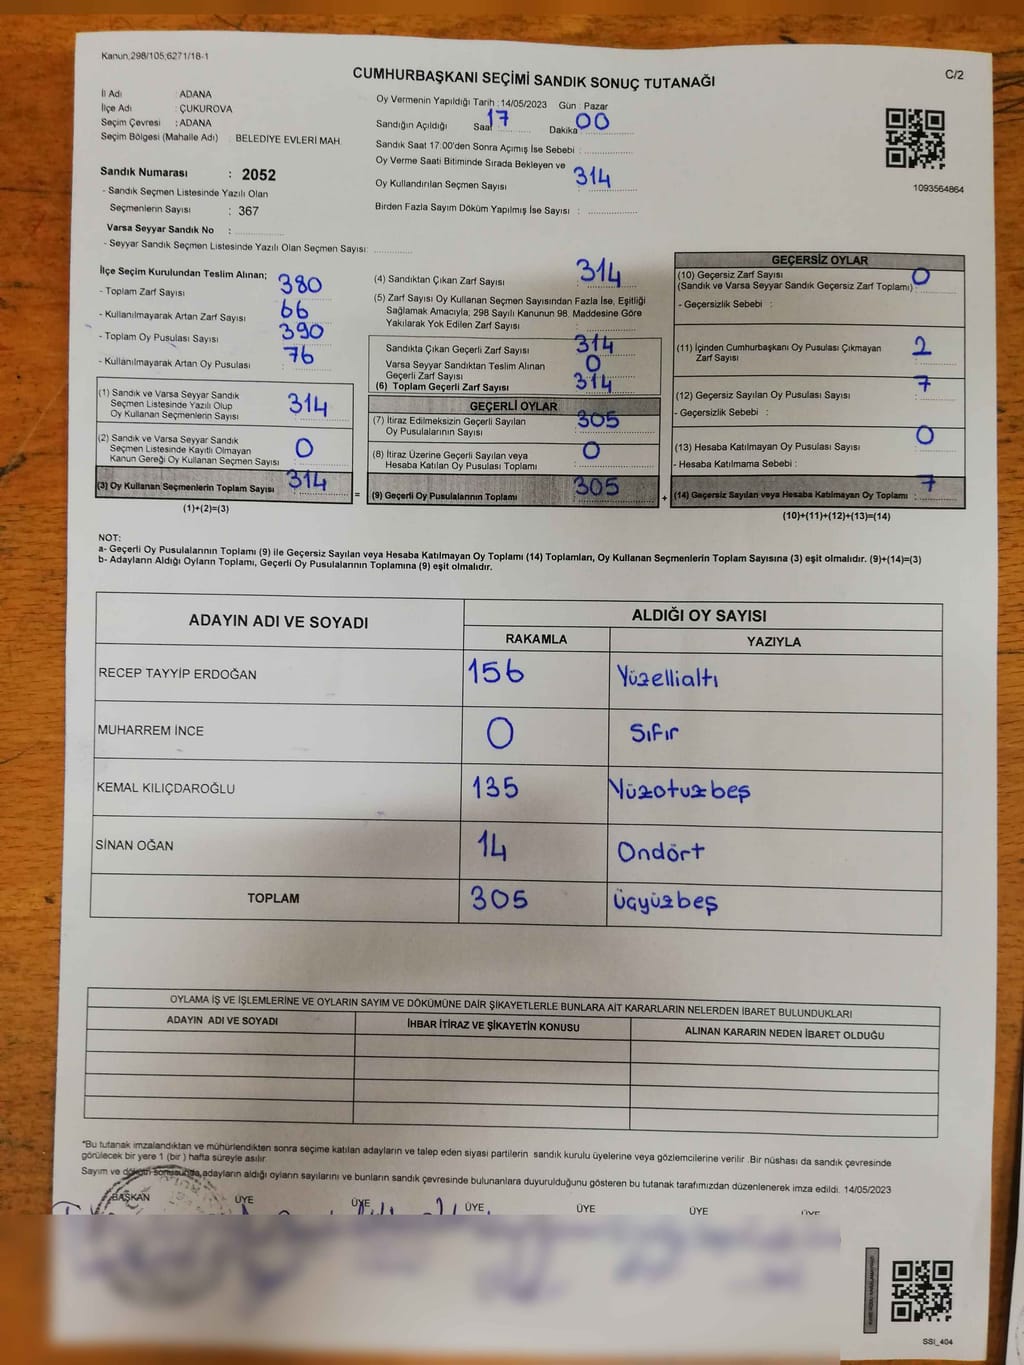 Kanun;298/105;6271/18-1
C/2
CUMHURBAŞKANI SEÇİMİ SANDIK SONUÇ TUTANAĞI
İl Adı : ADANA
İlçe Adı : ÇUKUROVA
Seçim Çevresi : ADANA
Seçim Bölgesi (Mahalle Adı) : BELEDİYE EVLERİ MAH.
Sandık Numarası : 2052
- Sandık Seçmen Listesinde Yazılı Olan
Seçmenlerin Sayısı : 367
Varsa Seyyar Sandık No :
- Seyyar Sandık Seçmen Listesinde Yazılı Olan Seçmen Sayısı:
Oy Vermenin Yapıldığı Tarih : 14/05/2023 Gün : Pazar
Sandığın Açıldığı Saat 17 Dakika 00
Sandık Saat 17:00'den Sonra Açımış İse Sebebi :
Oy Verme Saati Bitiminde Sırada Bekleyen ve
Oy Kullandırılan Seçmen Sayısı 314
Birden Fazla Sayım Döküm Yapılmış İse Sayısı :
1093564864
İlçe Seçim Kurulundan Teslim Alınan;
- Toplam Zarf Sayısı 380
- Kullanılmayarak Artan Zarf Sayısı 66
- Toplam Oy Pusulası Sayısı 390
- Kullanılmayarak Artan Oy Pusulası 76
(1) Sandık ve Varsa Seyyar Sandık
Seçmen Listesinde Yazılı Olup
Oy Kullanan Seçmenlerin Sayısı 314
(2) Sandık ve Varsa Seyyar Sandık
Seçmen Listesinde Kayıtlı Olmayan
Kanun Gereği Oy Kullanan Seçmen Sayısı 0
(3) Oy Kullanan Seçmenlerin Toplam Sayısı 314
(1)+(2)=(3)
(4) Sandıktan Çıkan Zarf Sayısı 314
(5) Zarf Sayısı Oy Kullanan Seçmen Sayısından Fazla İse, Eşitliği
Sağlamak Amacıyla; 298 Sayılı Kanunun 98. Maddesine Göre
Yakılarak Yok Edilen Zarf Sayısı :
Sandıkta Çıkan Geçerli Zarf Sayısı 314
Varsa Seyyar Sandıktan Teslim Alınan
Geçerli Zarf Sayısı 0
(6) Toplam Geçerli Zarf Sayısı 314
GEÇERLİ OYLAR
(7) İtiraz Edilmeksizin Geçerli Sayılan
Oy Pusulalarının Sayısı 305
(8) İtiraz Üzerine Geçerli Sayılan veya
Hesaba Katılan Oy Pusulası Toplamı 0
= (9) Geçerli Oy Pusulalarının Toplamı 305
GEÇERSİZ OYLAR
(10) Geçersiz Zarf Sayısı 0
(Sandık ve Varsa Seyyar Sandık Geçersiz Zarf Toplamı)
- Geçersizlik Sebebi :
(11) İçinden Cumhurbaşkanı Oy Pusulası Çıkmayan
Zarf Sayısı 2
(12) Geçersiz Sayılan Oy Pusulası Sayısı 7
- Geçersizlik Sebebi :
(13) Hesaba Katılmayan Oy Pusulası Sayısı 0
- Hesaba Katılmama Sebebi :
+ (14) Geçersiz Sayılan veya Hesaba Katılmayan Oy Toplamı : 7
(10)+(11)+(12)+(13)=(14)
NOT:
a- Geçerli Oy Pusulalarının Toplamı (9) ile Geçersiz Sayılan veya Hesaba Katılmayan Oy Toplamı (14) Toplamları, Oy Kullanan Seçmenlerin Toplam Sayısına (3) eşit olmalıdır. (9)+(14)=(3)
b- Adayların Aldığı Oyların Toplamı, Geçerli Oy Pusulalarının Toplamına (9) eşit olmalıdır.
ADAYIN ADI VE SOYADI
ALDIĞI OY SAYISI
RAKAMLA YAZIYLA
RECEP TAYYİP ERDOĞAN 156 Yüzellialtı
MUHARREM İNCE 0 Sıfır
KEMAL KILIÇDAROĞLU 135 Yüzotuzbeş
SİNAN OĞAN 14 Ondört
TOPLAM 305 üçyüzbeş
OYLAMA İŞ VE İŞLEMLERİNE VE OYLARIN SAYIM VE DÖKÜMÜNE DAİR ŞİKAYETLERLE BUNLARA AİT KARARLARIN NELERDEN İBARET BULUNDUKLARI
ADAYIN ADI VE SOYADI İHBAR İTİRAZ VE ŞİKAYETİN KONUSU ALINAN KARARIN NEDEN İBARET OLDUĞU
*Bu tutanak imzalandıktan ve mühürlendikten sonra seçime katılan adayların ve talep eden siyasi partilerin sandık kurulu üyelerine veya gözlemcilerine verilir .Bir nüshası da sandık çevresinde
görülecek bir yere 1 (bir ) hafta süreyle asılır.
Sayım ve döküm sonucunda,adayların aldığı oyların sayılarını ve bunların sandık çevresinde bulunanlara duyurulduğunu gösteren bu tutanak tarafımızdan düzenlenerek imza edildi. 14/05/2023
BAŞKAN ÜYE ÜYE ÜYE ÜYE ÜYE ÜYE
SSI_404